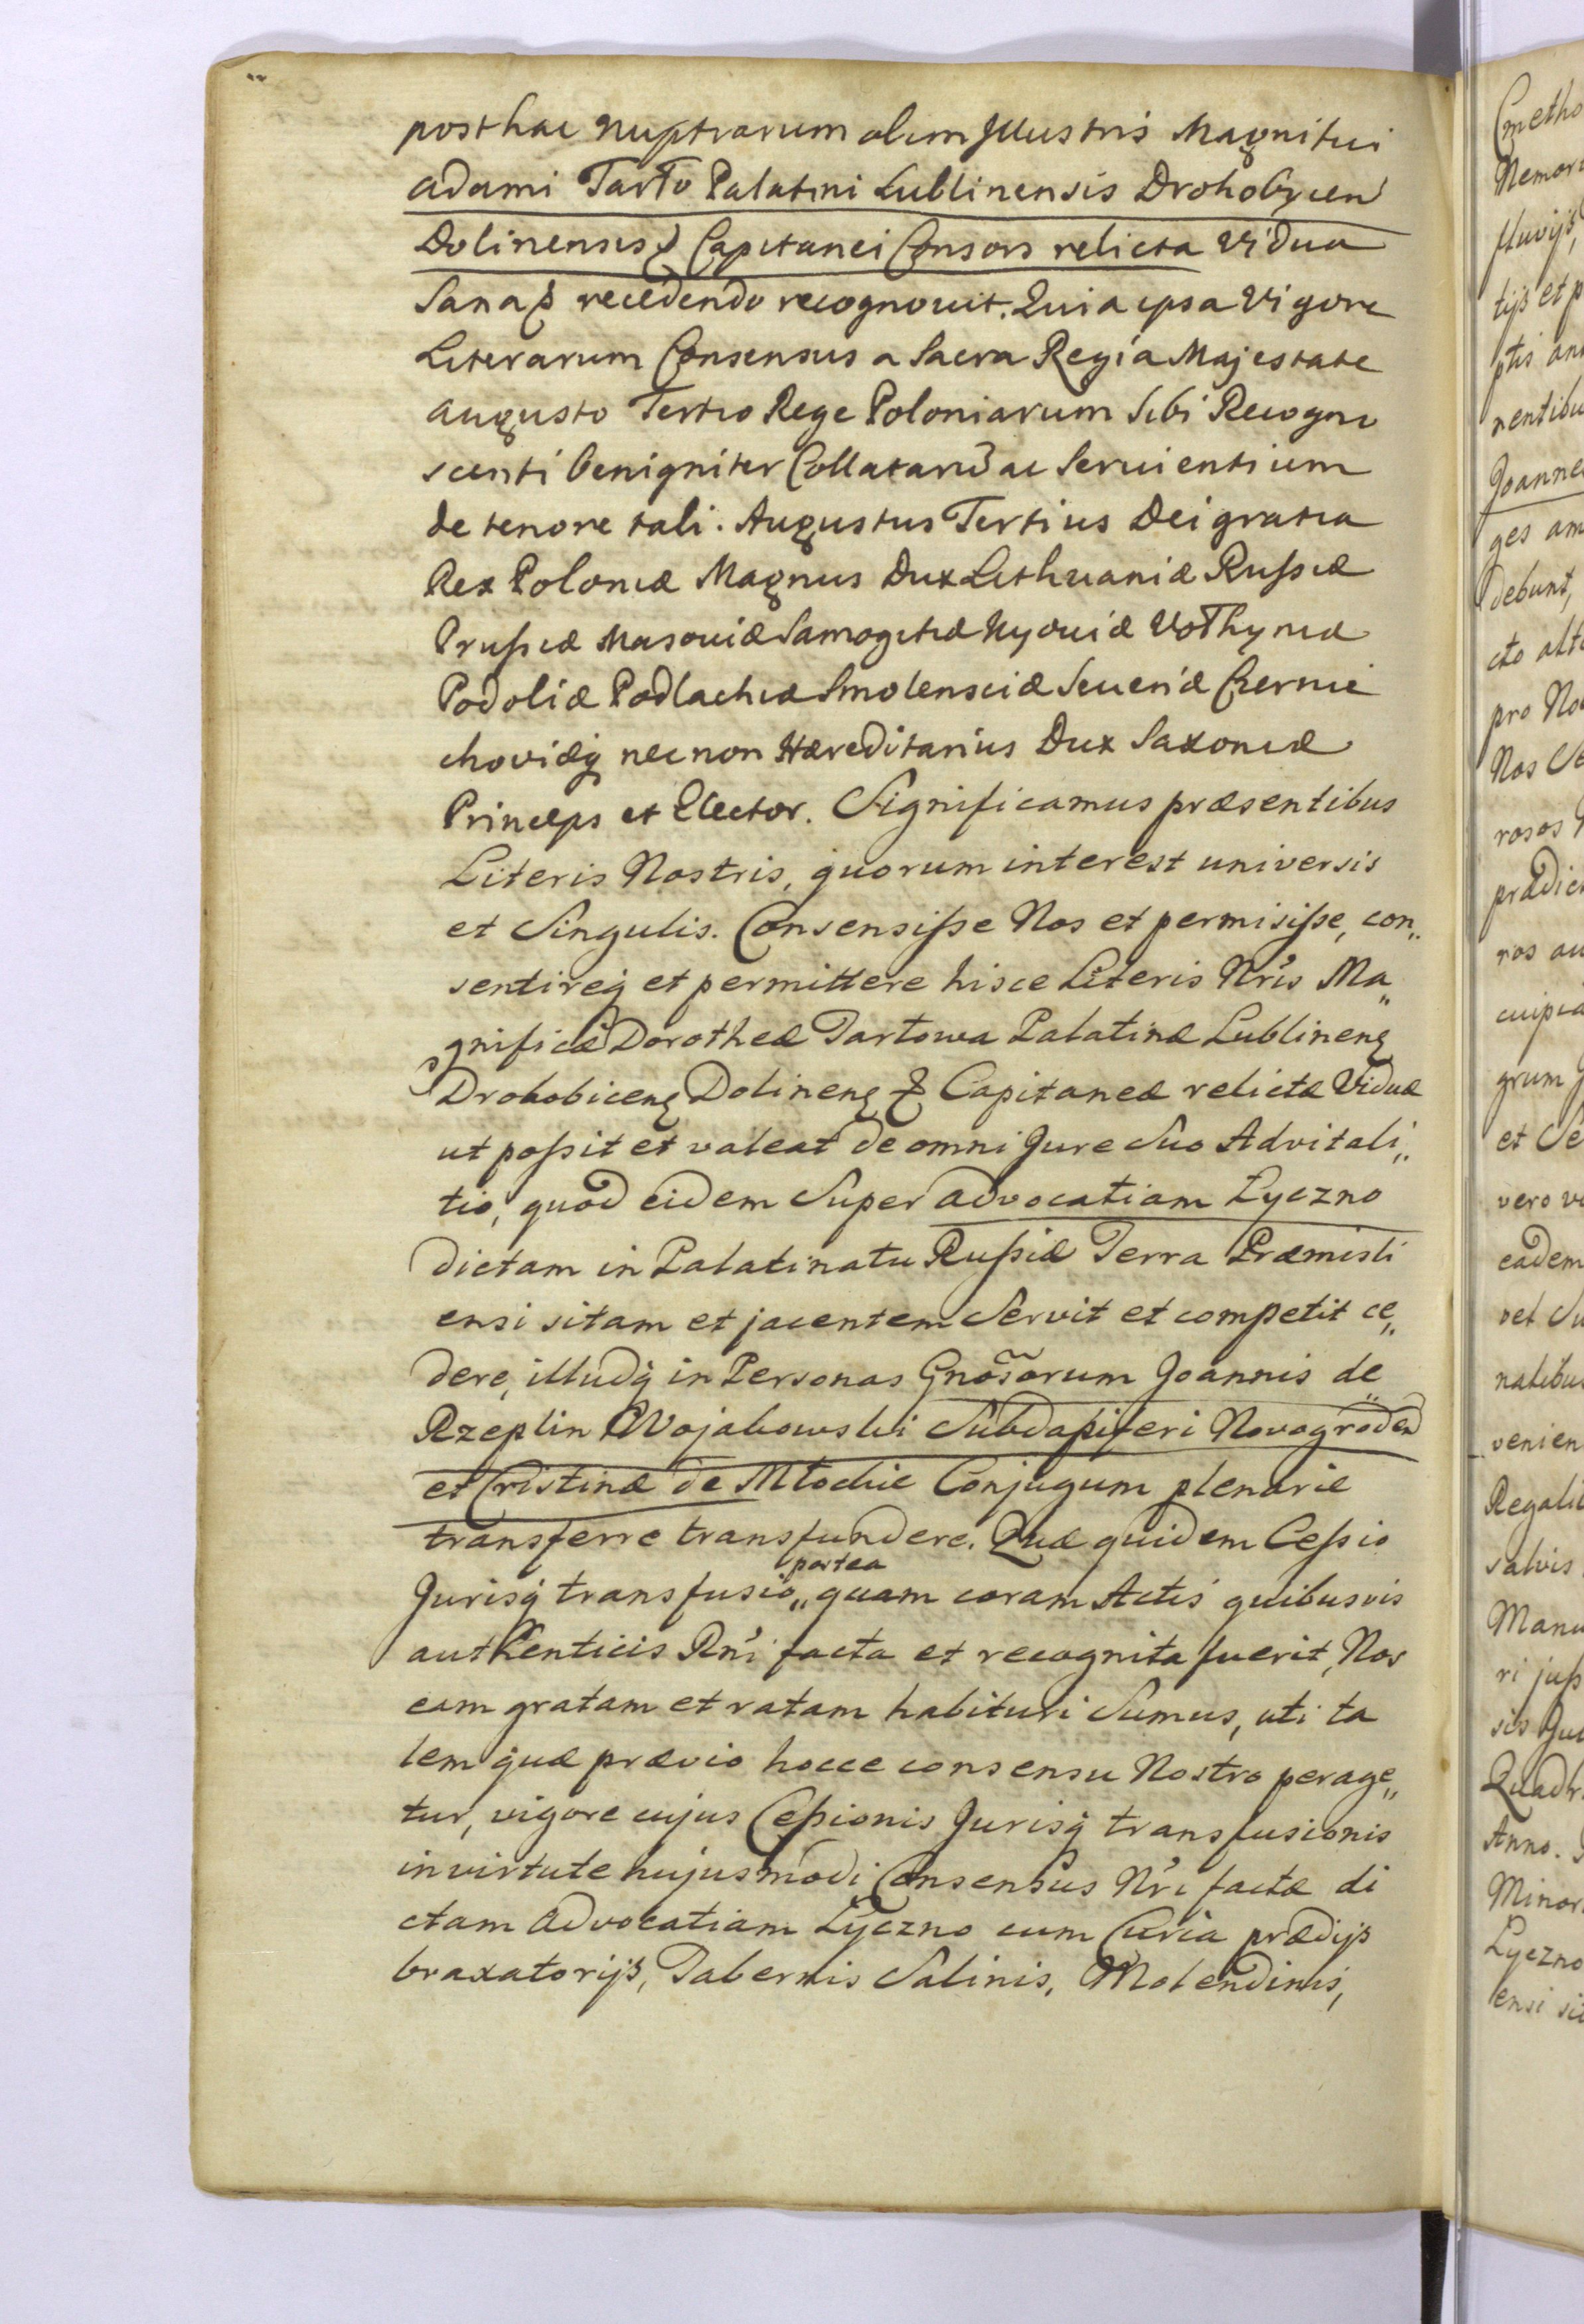 posthac nuptrarum olim Jllustris Magnifici
adami Tarło Palatini Lublinensis Drohobycen
Dolinensis & Capitanei Consors relicta Vidua
Sana & recedendo recognovit. Quia ipsa Vigore
Literarum Consensus a Sacra Regia Majestate
augusto Tertio Rege Poloniarum Sibi Recogno
scenti benigniter Collatarũ ac Servientium
de tenore tali. Augustus Tertius Dei gratia
Rex Poloniæ Magnus Dux Lithuaniæ Rußiæ
Prußiæ Masoviæ Samogitiæ Kyoviæ Volhyniæ
Podoliæ Podlachiæ Smolensciæ Severiæ Czernie
choviæq nec non Hæreditarius Dux Saxoniæ
Princeps et Elector. Significamus præsentibus
Literis Nostris, quorum interest universis
et Singulis. Consensiße Nos et permisiße, con„
sentireq et permittere hisce Literis Nris Ma„
gnificæ Dorotheæ Tartowa Palatinæ Lublineng
Drohobiceng Dolineng & Capitaneæ relictæ Viduæ
ut poßit et valeat de omni Jure Suo Advitali„
tio, quod eidem Super advocatiam Łyczno
dictam in Palatinatu Rußiæ Terra Præmisli
ensi sitam et jacentem Servit et competit ce„
dere, illudq in Personas Gnõsorum Joannis de
Rzeplin Wojakowski Subdapiferi Novogroden
et Cristinæ de Młockie Conjugum plenarie
transferre transfundere. Quæ quidem Ceßio
Jurisq transfusio„ postea quam coram Actis quibusvis
authenticis Rni facta et recognita fuerit, Nos
eam gratam et ratam habituri Sumus, uti ta
lem quæ prævio hocce consensu Nostro perage„
tur, vigore cujus Ceßionis Jurisq transfusionis
in virtute hujusmodi Consensus Nri factæ di
ctam Advocatiam Łyczno cum Curia prædijs
braxatorijs, Tabernis Salinis, Molendinis,
Cmetho
Nemor
fluvijs,
tijs et p
ptis an
nentibu
Joanne
ges am
debunt,
cto alt
pro No
Nos Se
rosos
prædic
ros au
cuipia
grum
et Se
vero v
eadem
vel Su
natibu
venien
Regali
salvis
Manu
ri juß
sis Qu
Quadr
Anno.
Minor
Łyczno
ensi si